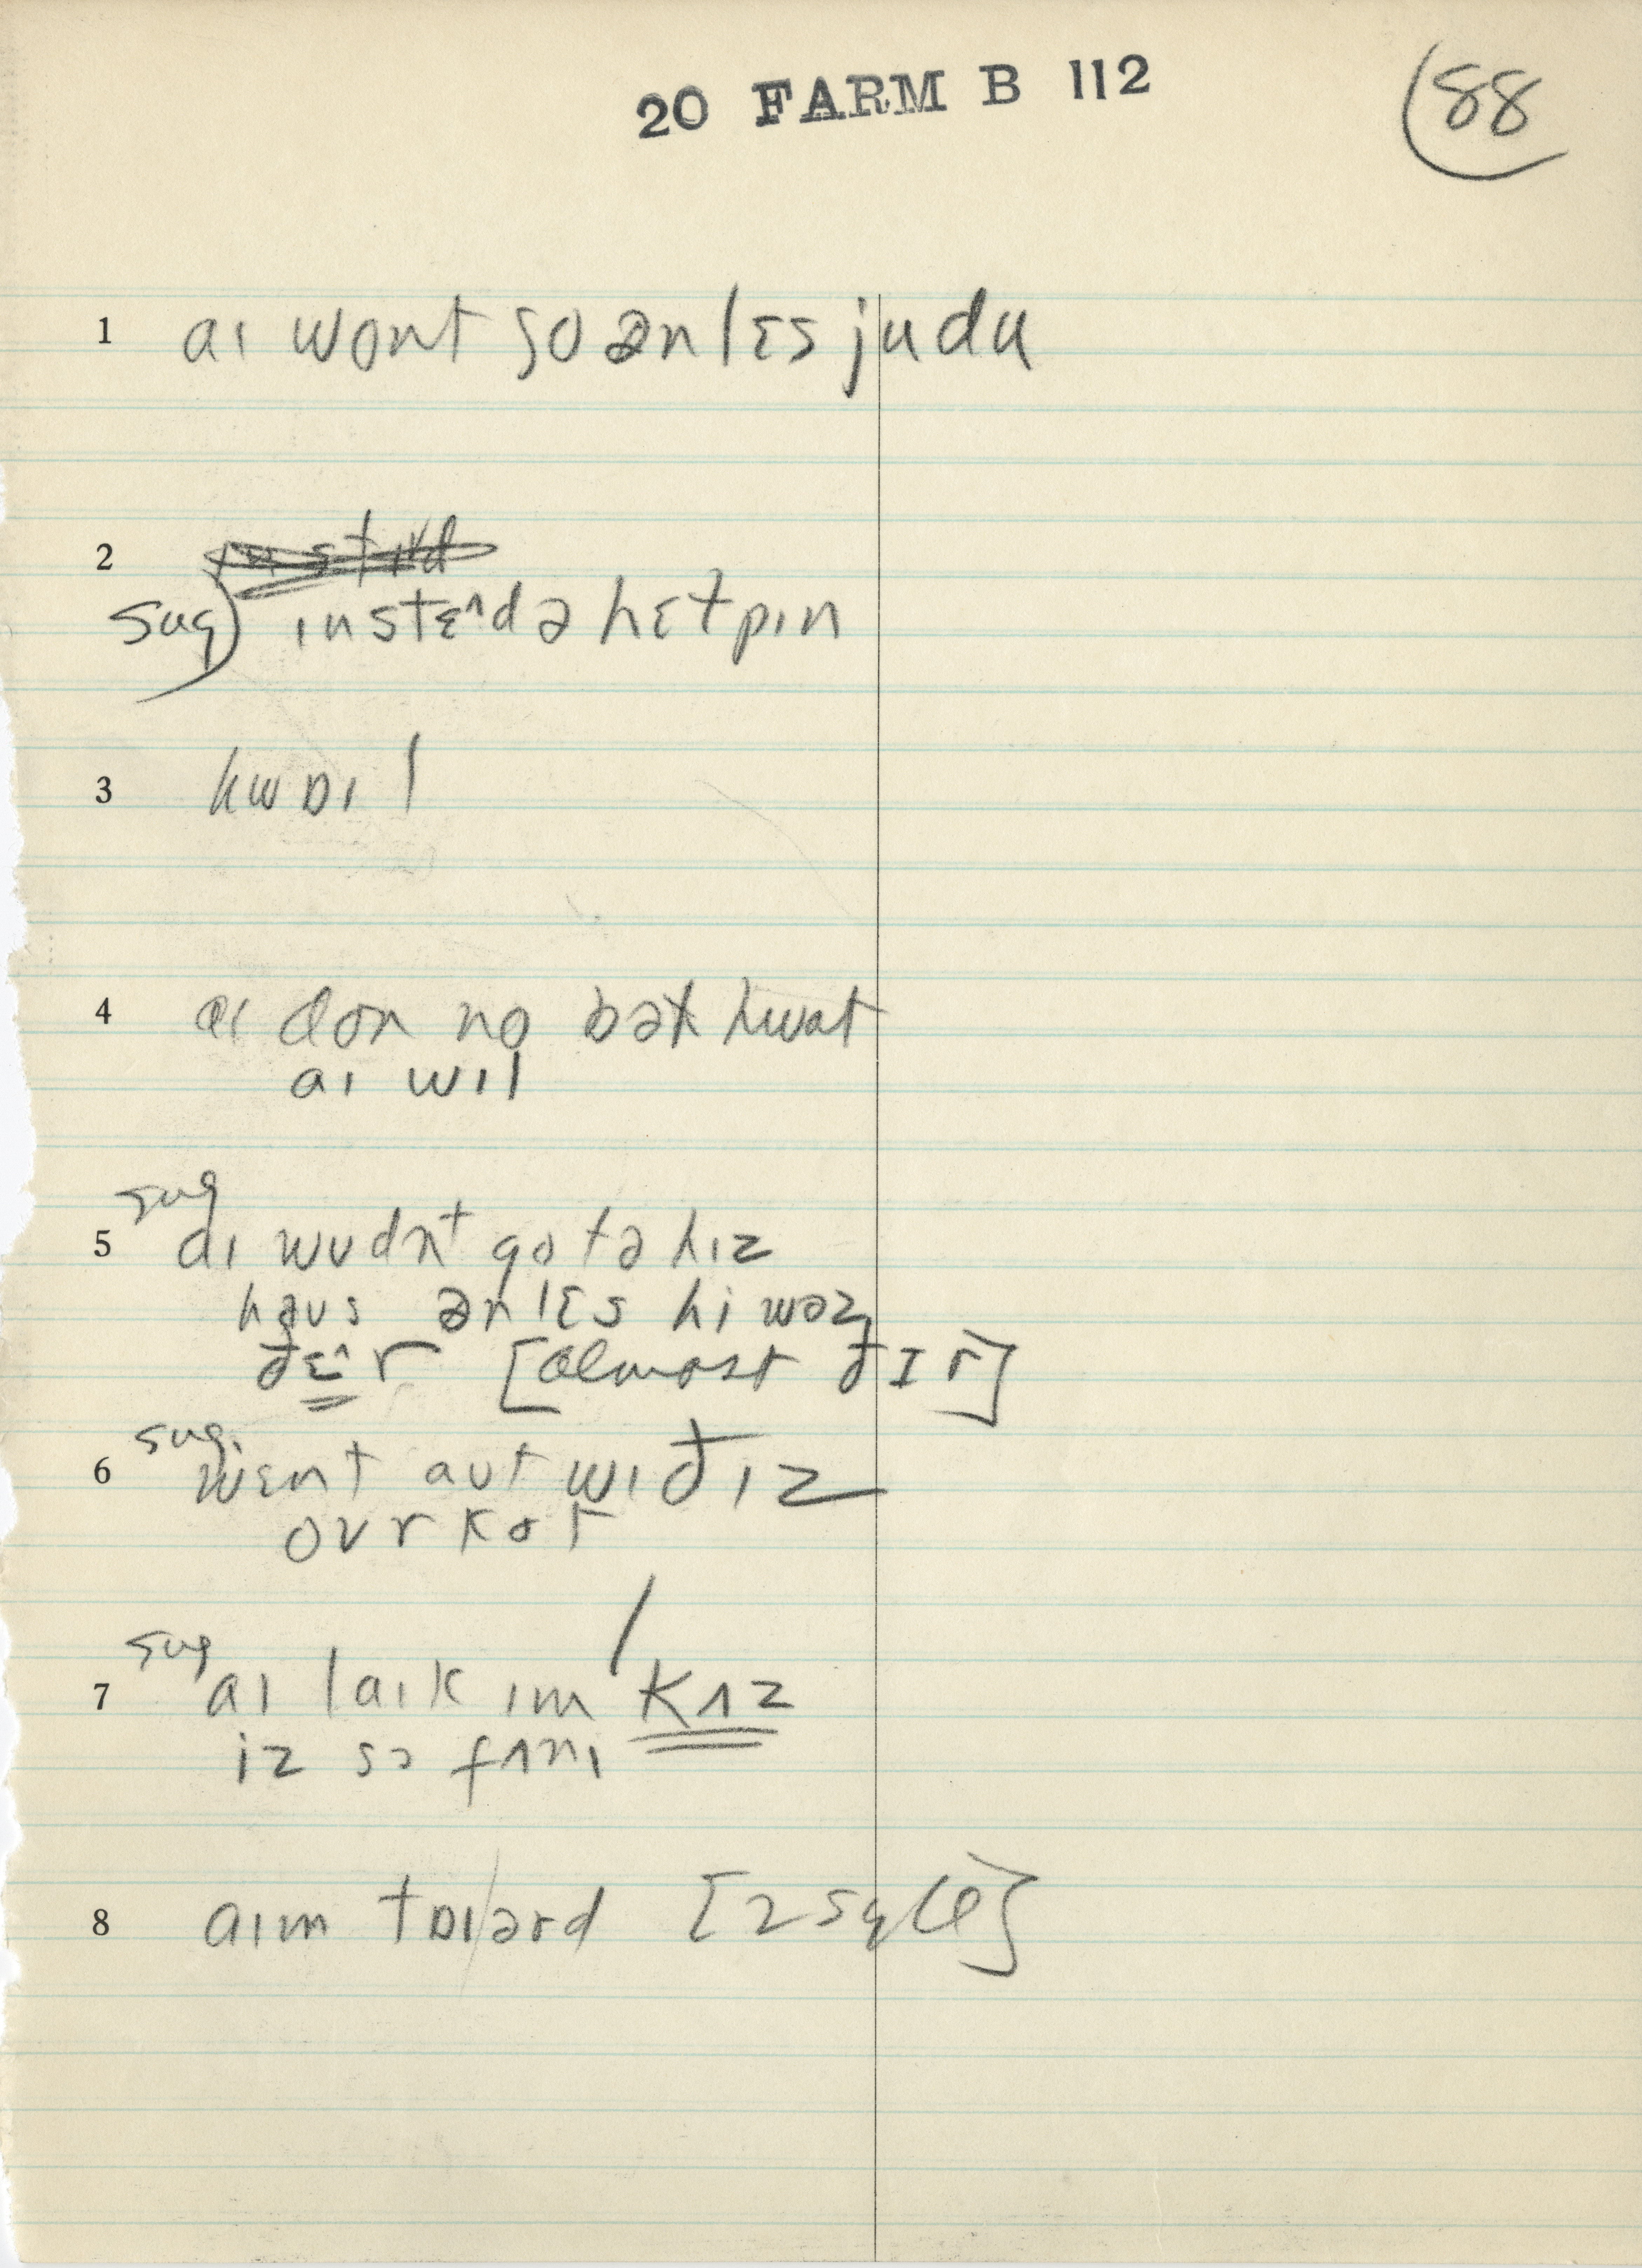 20 FARM B 112
88
1 aɪ wont go ənlɛs judu
2
sug) ɪnstɛ^d ə hɛtpɪn
3 hwɒɪl
4 aɪ don no bət hwat
aɪ wɪl
sug
5 aɪ wʊdnt go tə hɪz
haʊs ənlɛs hi wəz
ðɛ^r [almost ðɪr]
sug.
6 wɛnt aʊt wɪðɪz
ovrkot
sug
7 aɪ laɪk ɪm / kʌz
iz sə fʌnɪ
8 aɪm tɒɪ/ərd [2 syll]